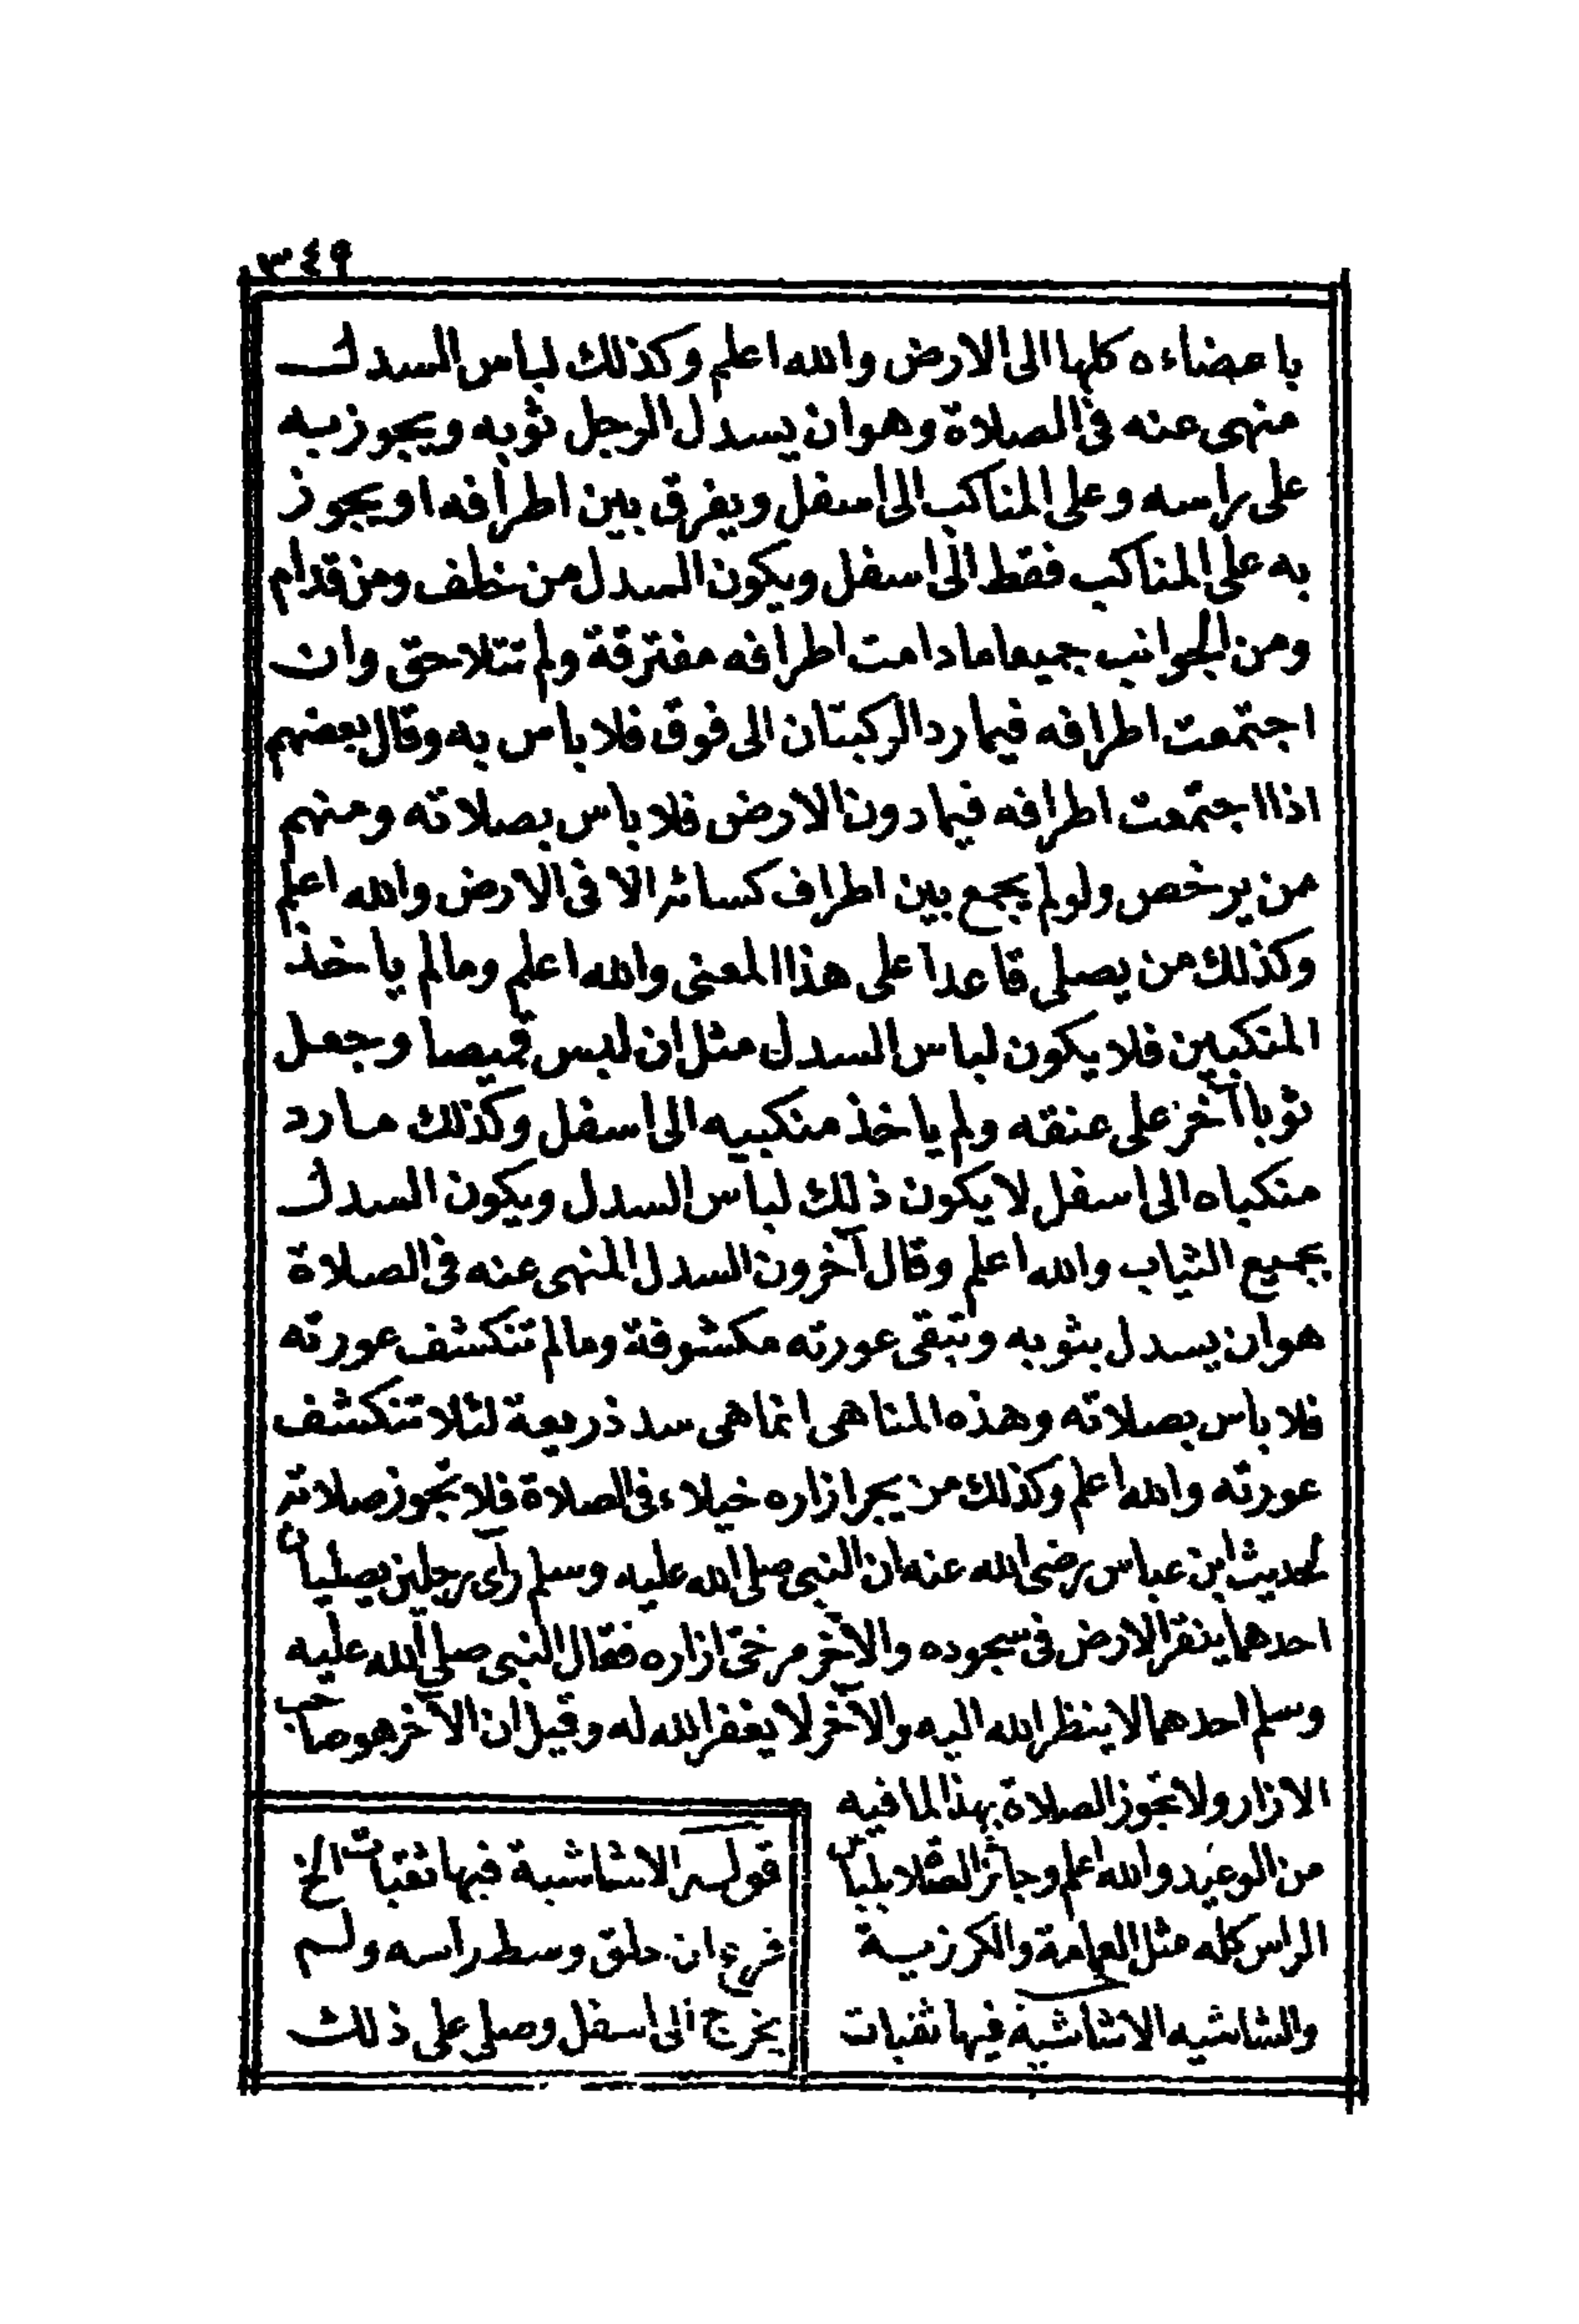 ٣٤٩
باعضاءه كلها الى الارض والله اعلم وكذلك لباس السدل
منهى عنه فى الصلاة وهوان يسدل الرجل ثوبه ويجوز به
على راسه وعلى المناكب الى اسفل ويفرق بين اطرافه او يجوز
به على المناكب فقط الى اسفل ويكون السدل من خلف ومن قدام
ومن الجوانب جميعا ما دامت اطرافه مفترقة ولم تتلاحق وان
اجتمعت اطرافه فيما رد الركبتان الى فوق فلا باس به وقال بعضهم
اذا اجتمعت اطرافه فيما دون الارض فلا باس بصلاته ومنهم
من يرخص ولو لم يجمع بين اطراف كسائه الا فى الارض والله اعلم
وكذلك من يصلى قاعدا على هذا المعنى والله اعلم وما لم ياخذ
المنكبين فلا يكون لباس السدل مثل ان لبس قميصا وجعل
ثوبا آخر على عنقه ولم ياخذ منكبيه الى اسفل وكذلك ما رد
منكباه الى اسفل لا يكون ذلك لباس السدل ويكون السدل
بجميع الثياب والله اعلم وقال آخرون السدل المنهى عنه فى الصلاة
هوان يسدل بثوبه وتبقى عورته مكشوفة وما لم تنكشف عورته
فلا باس بصلاته وهذه المناهى انما هى سد ذريعة لئلا تنكشف
عورته والله اعلم وكذلك من يجر ازاره خيلاء فى الصلاة فلا تجوز صلاته
لحديث ابن عباس رضى الله عنه ان النبى صلى الله عليه وسلم رآى رجلين يصليان
احدهما ينقر الارض فى سجوده والآخر مرخى ازاره فقال النبى صلى الله عليه
وسلم احدهما لا ينظر الله اليه والآخر لا يغفر الله له وقيل ان الآخر هو صاحب
الازار ولا تجوز الصلاة بهذا لما فيه
من الوعيد والله اعلم وجائز الصلاة بلباس
الراس كله مثل العمامة والكرزية
والشاشيه الا شاشية فيها ثقبات
قوله الا شاشية فيها ثقبات الخ
فرع ان حلق وسط راسه ولم
يخرج الى اسفل وصلى على ذلك